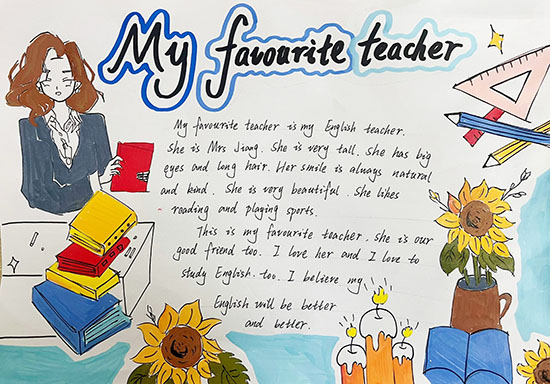 My favourite teacher
My favourite teacher is my English teacher.
She is Mrs Jiang. She is very tall. She has big
eyes and long hair. Her smile is always natural
and kind. She is very beautiful. She likes
reading and playing sports.
This is my favourite teacher. She is our
good friend too. I love her and I love to
study English. too. I believe my
English will be better
and better.